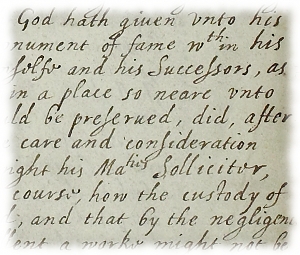 God hath given vnto his
nument of fame wth in his
selfe and his Successors, as
in a place so neare vnto
ld be preserued, did, after
care and consideration
ight his Matis Solliciter,
course, how the custody of
and that by the negligen
a worke might not be